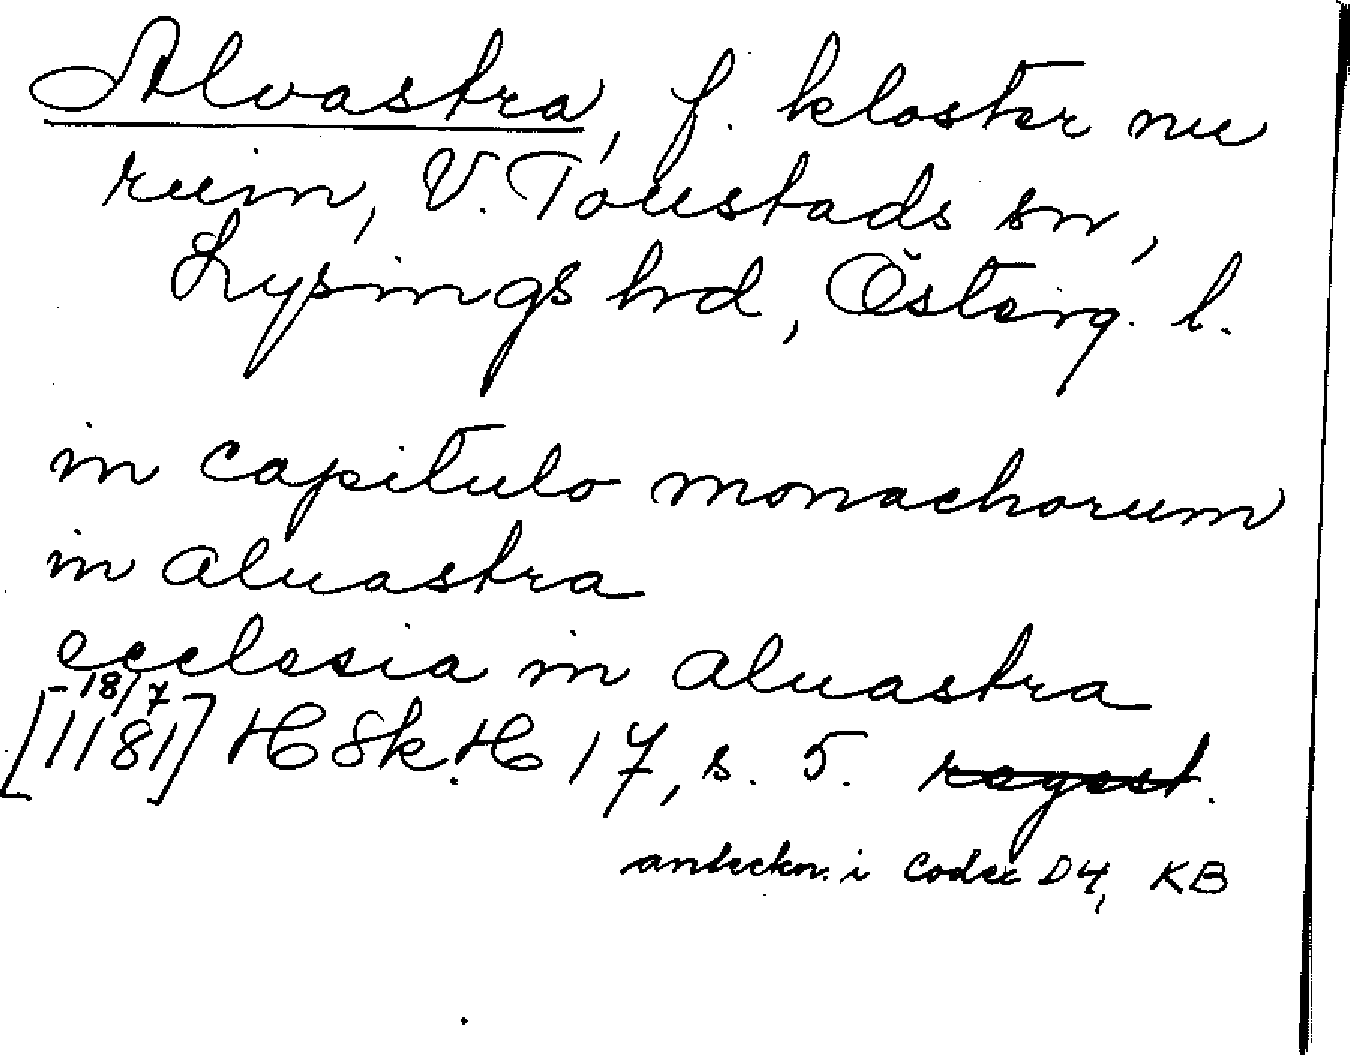 Alvastra, f. kloster nu
ruin, V. Tollstads sn,
Lysings hd, Österg. l.
in capitulo monachorum
in aluastra
ecclesia in aluastra
[- 18/7 1181] HSkH 17, s. 5. regest.
anteckn. i Codex D4, KB